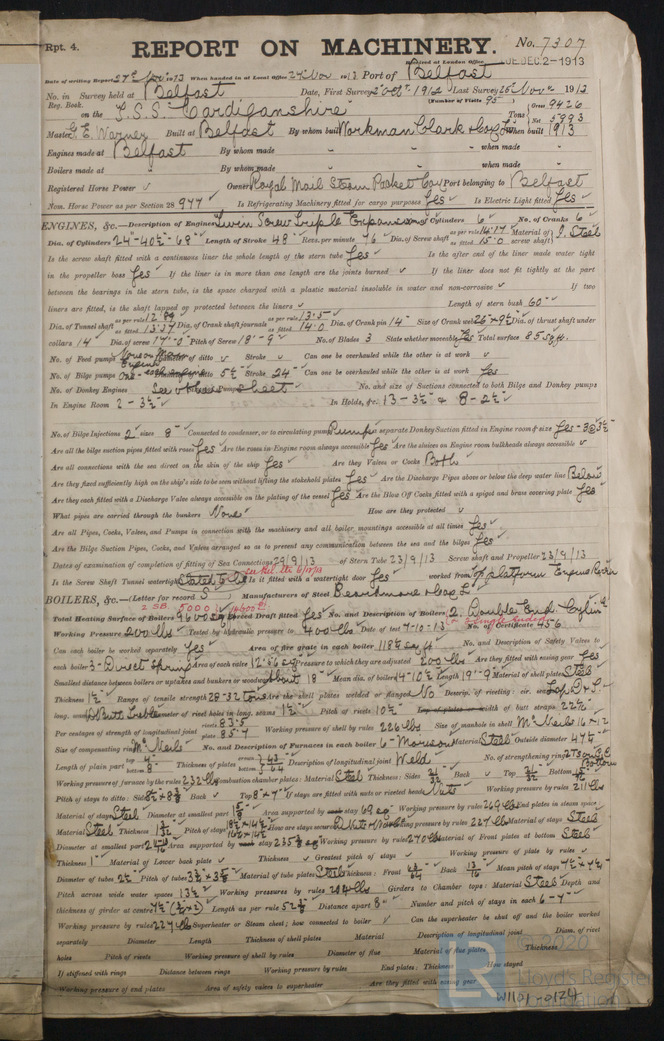 Rpt. 4.
REPORT ON MACHINERY.
No. 7307
Received at London Office
DEC 2 - 1913
Date of writing Report 27th Nov 1913 When handed in at Local Office 29 Nov 1913 Port of Belfast
No. in Survey held at Belfast Date, First Survey 1912 Last Survey 25 Nov 1913
Reg. Book. (Number of Visits 95)
on the T.S.S. Cardiganshire Tons Gross 9426 Net 5993
Master Built at Belfast By whom built Workman Clark & Coy Ld When built 1913
Engines made at Belfast By whom made " when made "
Boilers made at " By whom made " when made "
Registered Horse Power Owners Royal Mail Steam Packet Coy Port belonging to Belfast
Nom. Horse Power as per Section 28 977 Is Refrigerating Machinery fitted for cargo purposes Yes Is Electric Light fitted Yes
ENGINES, &c.—Description of Engines Twin Screw Triple Expansion No. of Cylinders 6 No. of Cranks 6
Dia. of Cylinders 24"-40½"-68" Length of Stroke 48" Revs. per minute 76 Dia. of Screw shaft as per rule as fitted 15.0 Material of screw shaft Steel
Is the screw shaft fitted with a continuous liner the whole length of the stern tube Yes Is the after end of the liner made water tight
in the propeller boss Yes If the liner is in more than one length are the joints burned If the liner does not fit tightly at the part
between the bearings in the stern tube, is the space charged with a plastic material insoluble in water and non-corrosive If two
liners are fitted, is the shaft lapped or protected between the liners Length of stern bush 60"
Dia. of Tunnel shaft as per rule 12.89 as fitted Dia. of Crank shaft journals as per rule 13.5 as fitted 14.0 Dia. of Crank pin 14" Size of Crank webs 26"x9½" Dia. of thrust shaft under
collars 14" Dia. of screw 17'-0" Pitch of Screw 18'-9" No. of Blades 3 State whether moveable Yes Total surface 85 sq ft.
No. of Feed pumps Diameter of ditto Stroke Can one be overhauled while the other is at work
No. of Bilge pumps One each engine Diameter of ditto 5½ Stroke 24" Can one be overhauled while the other is at work Yes
No. of Donkey Engines See other sheet No. and size of Suctions connected to both Bilge and Donkey pumps
In Engine Room 2 - 3½" In Holds, &c. 13 - 3½" & 8 - 2½"
No. of Bilge Injections 2 sizes 8" Connected to condenser, or to circulating pump Pump Is a separate Donkey Suction fitted in Engine room & size Yes - 3@3½"
Are all the bilge suction pipes fitted with roses Yes Are the roses in Engine room always accessible Yes Are the sluices on Engine room bulkheads always accessible
Are all connections with the sea direct on the skin of the ship Yes Are they Valves or Cocks Both
Are they fixed sufficiently high on the ship's side to be seen without lifting the stokehold plates Yes Are the Discharge Pipes above or below the deep water line Below
Are they each fitted with a Discharge Valve always accessible on the plating of the vessel Yes Are the Blow Off Cocks fitted with a spigot and brass covering plate Yes
What pipes are carried through the bunkers None How are they protected
Are all Pipes, Cocks, Valves, and Pumps in connection with the machinery and all boiler mountings accessible at all times Yes
Are the Bilge Suction Pipes, Cocks, and Valves arranged so as to prevent any communication between the sea and the bilges Yes
Dates of examination of completion of fitting of Sea Connections 29/9/13 of Stern Tube 23/9/13 Screw shaft and Propeller 23/9/13
Is the Screw Shaft Tunnel watertight Stated to be Is it fitted with a watertight door Yes worked from Top platform Engine Room
BOILERS, &c.—(Letter for record S) Manufacturers of Steel Beardmore & Coy Ld
2 S.B. 5000
Total Heating Surface of Boilers 9600 Is Forced Draft fitted Yes No. and Description of Boilers 2 Double End
Working Pressure 200 lbs Tested by hydraulic pressure to 400 lbs Date of test 7-10-13 No. of Certificate 456
Can each boiler be worked separately Yes Area of fire grate in each boiler 118½ sq ft No. and Description of Safety Valves to
each boiler 3 - Direct Spring Area of each valve Pressure to which they are adjusted 200 lbs Are they fitted with easing gear Yes
Smallest distance between boilers or uptakes and bunkers or woodwork about 18" Mean dia. of boilers 14'-10½" Length 19'-9" Material of shell plates Steel
Thickness Range of tensile strength 28-32 tons Are the shell plates welded or flanged No Descrip. of riveting: cir. seams Lap D.R.
long. seams D Butt Treble Diameter of rivet holes in long. seams Pitch of rivets 10½" Lap of plates or width of butt straps 22½"
Per centages of strength of longitudinal joint rivets 83.5 plate 85.7 Working pressure of shell by rules 226 lbs Size of manhole in shell McNeils 16x12
Size of compensating ring McNeils No. and Description of Furnaces in each boiler 6 - Morison Material Steel Outside diameter 47½"
Length of plain part top bottom Thickness of plates crown bottom Description of longitudinal joint Weld No. of strengthening rings
Working pressure of furnace by the rules 232 lbs Combustion chamber plates: Material Steel Thickness: Sides Back Top Bottom
Pitch of stays to ditto: Sides Back Top 8"x7" If stays are fitted with nuts or riveted heads Nuts Working pressure by rules 211 lbs
Material of stays Steel Diameter at smallest part Area supported by each stay 69 sq" Working pressure by rules 269 lbs End plates in steam space:
Material Steel Thickness Pitch of stays How are stays secured Working pressure by rules 227 lbs Material of stays Steel
Diameter at smallest part Area supported by each stay Working pressure by rules 270 lbs Material of Front plates at bottom Steel
Thickness 1" Material of Lower back plate Thickness Greatest pitch of stays Working pressure of plate by rules
Diameter of tubes 2½ Pitch of tubes Material of tube plates Steel Thickness: Front Back Mean pitch of stays
Pitch across wide water spaces 13½" Working pressures by rules Girders to Chamber tops: Material Steel Depth and
thickness of girder at centre Length as per rule Distance apart 8" Number and pitch of stays in each 6 - 7"
Working pressure by rules 227 lbs Superheater or Steam chest; how connected to boiler Can the superheater be shut off and the boiler worked
separately Diameter Length Thickness of shell plates Material Description of longitudinal joint Diam. of rivet
holes Pitch of rivets Working pressure of shell by rules Diameter of flue Material of flue plates Thickness
If stiffened with rings Distance between rings Working pressure by rules End plates: Thickness How stayed
Working pressure of end plates Area of safety valves to superheater Are they fitted with easing gear
© 2020
Lloyd's Register
Foundation
W1101-0124